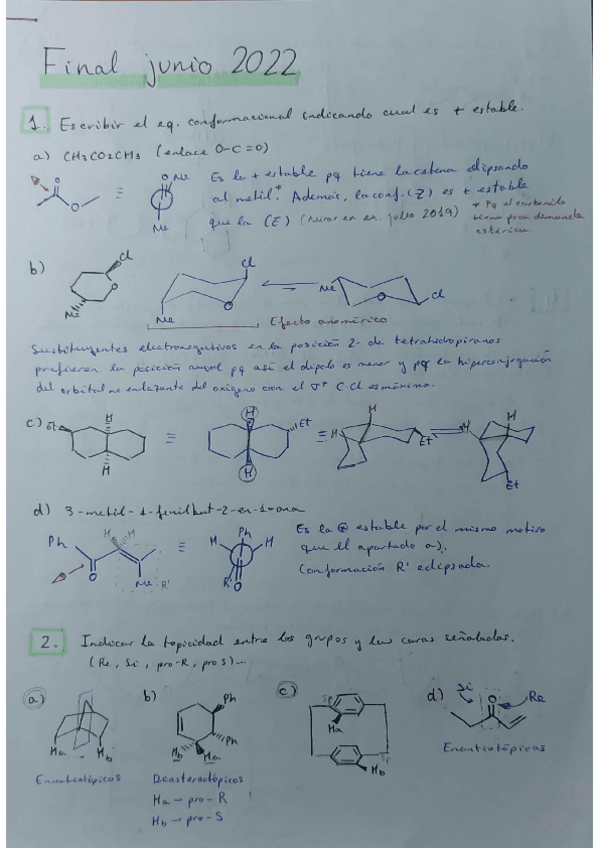 Final junio 2022
1. Escribir el eq. conformacional indicando cual es + estable.
a) CH3CO2CH3 (enlace O-C=O)
O Me
Me
≡
Es la + estable pq tiene la cetona eclipsando
al metil.* Además, la conf. (Z) es + estable
que la (E) (mirar en ex. julio 2019)
* Pq el carbonilo
tiene poca demanda
estérica.
b)
Cl
O
Me
Cl
O
Me
Me
O
Cl
Efecto anomérico
Sustituyentes electronegativos en la posición 2- de tetrahidropiranos
prefieren la posición axial pq así el dipolo es menor y pq la hiperconjugación
del orbital no enlazante del oxígeno con el σ* C-Cl es máxima.
c) Et
H
H
≡
H
H
Et
≡
H
H
Et
H
H
Et
d) 3-metil-1-fenilbut-2-en-1-ona
Ph
H
H
O
Me
R'
≡
Ph
H
H
O
R'
Es la + estable por el mismo motivo
que el apartado a).
Conformación R' eclipsada.
2. Indicar la topicidad entre los grupos y las caras señaladas.
(Re, Si, pro-R, pro S)...
a)
Ha
Hb
Enantiotópicos
b)
Ph
Ph
Hb
Ha
Diastereotópicos
Ha → pro-R
Hb → pro-S
c)
Sp
Ha
Sp
Hb
d)
Si
O
Re
Enantiotópicas